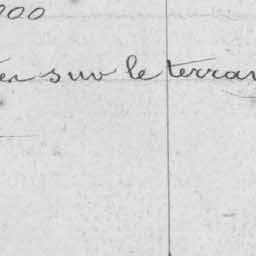 000
en sur le terrai